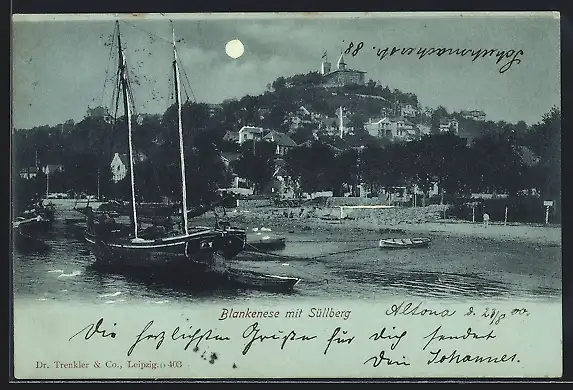 Blankenese mit Süllberg
Altona d. 21/8 00.
Die herzlichsten Grüße für Dich sendet
dein Johannes.
Dr. Trenkler & Co., Leipzig. 403
88